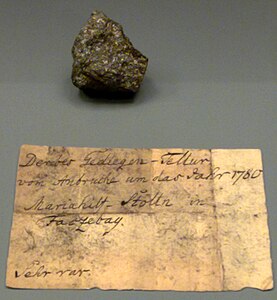 Derbes Gediegen-Tellur
vom Anbruche um das Jahr 1760
Mariahilf-Stolln in
Faczebay.
Sehr rar.